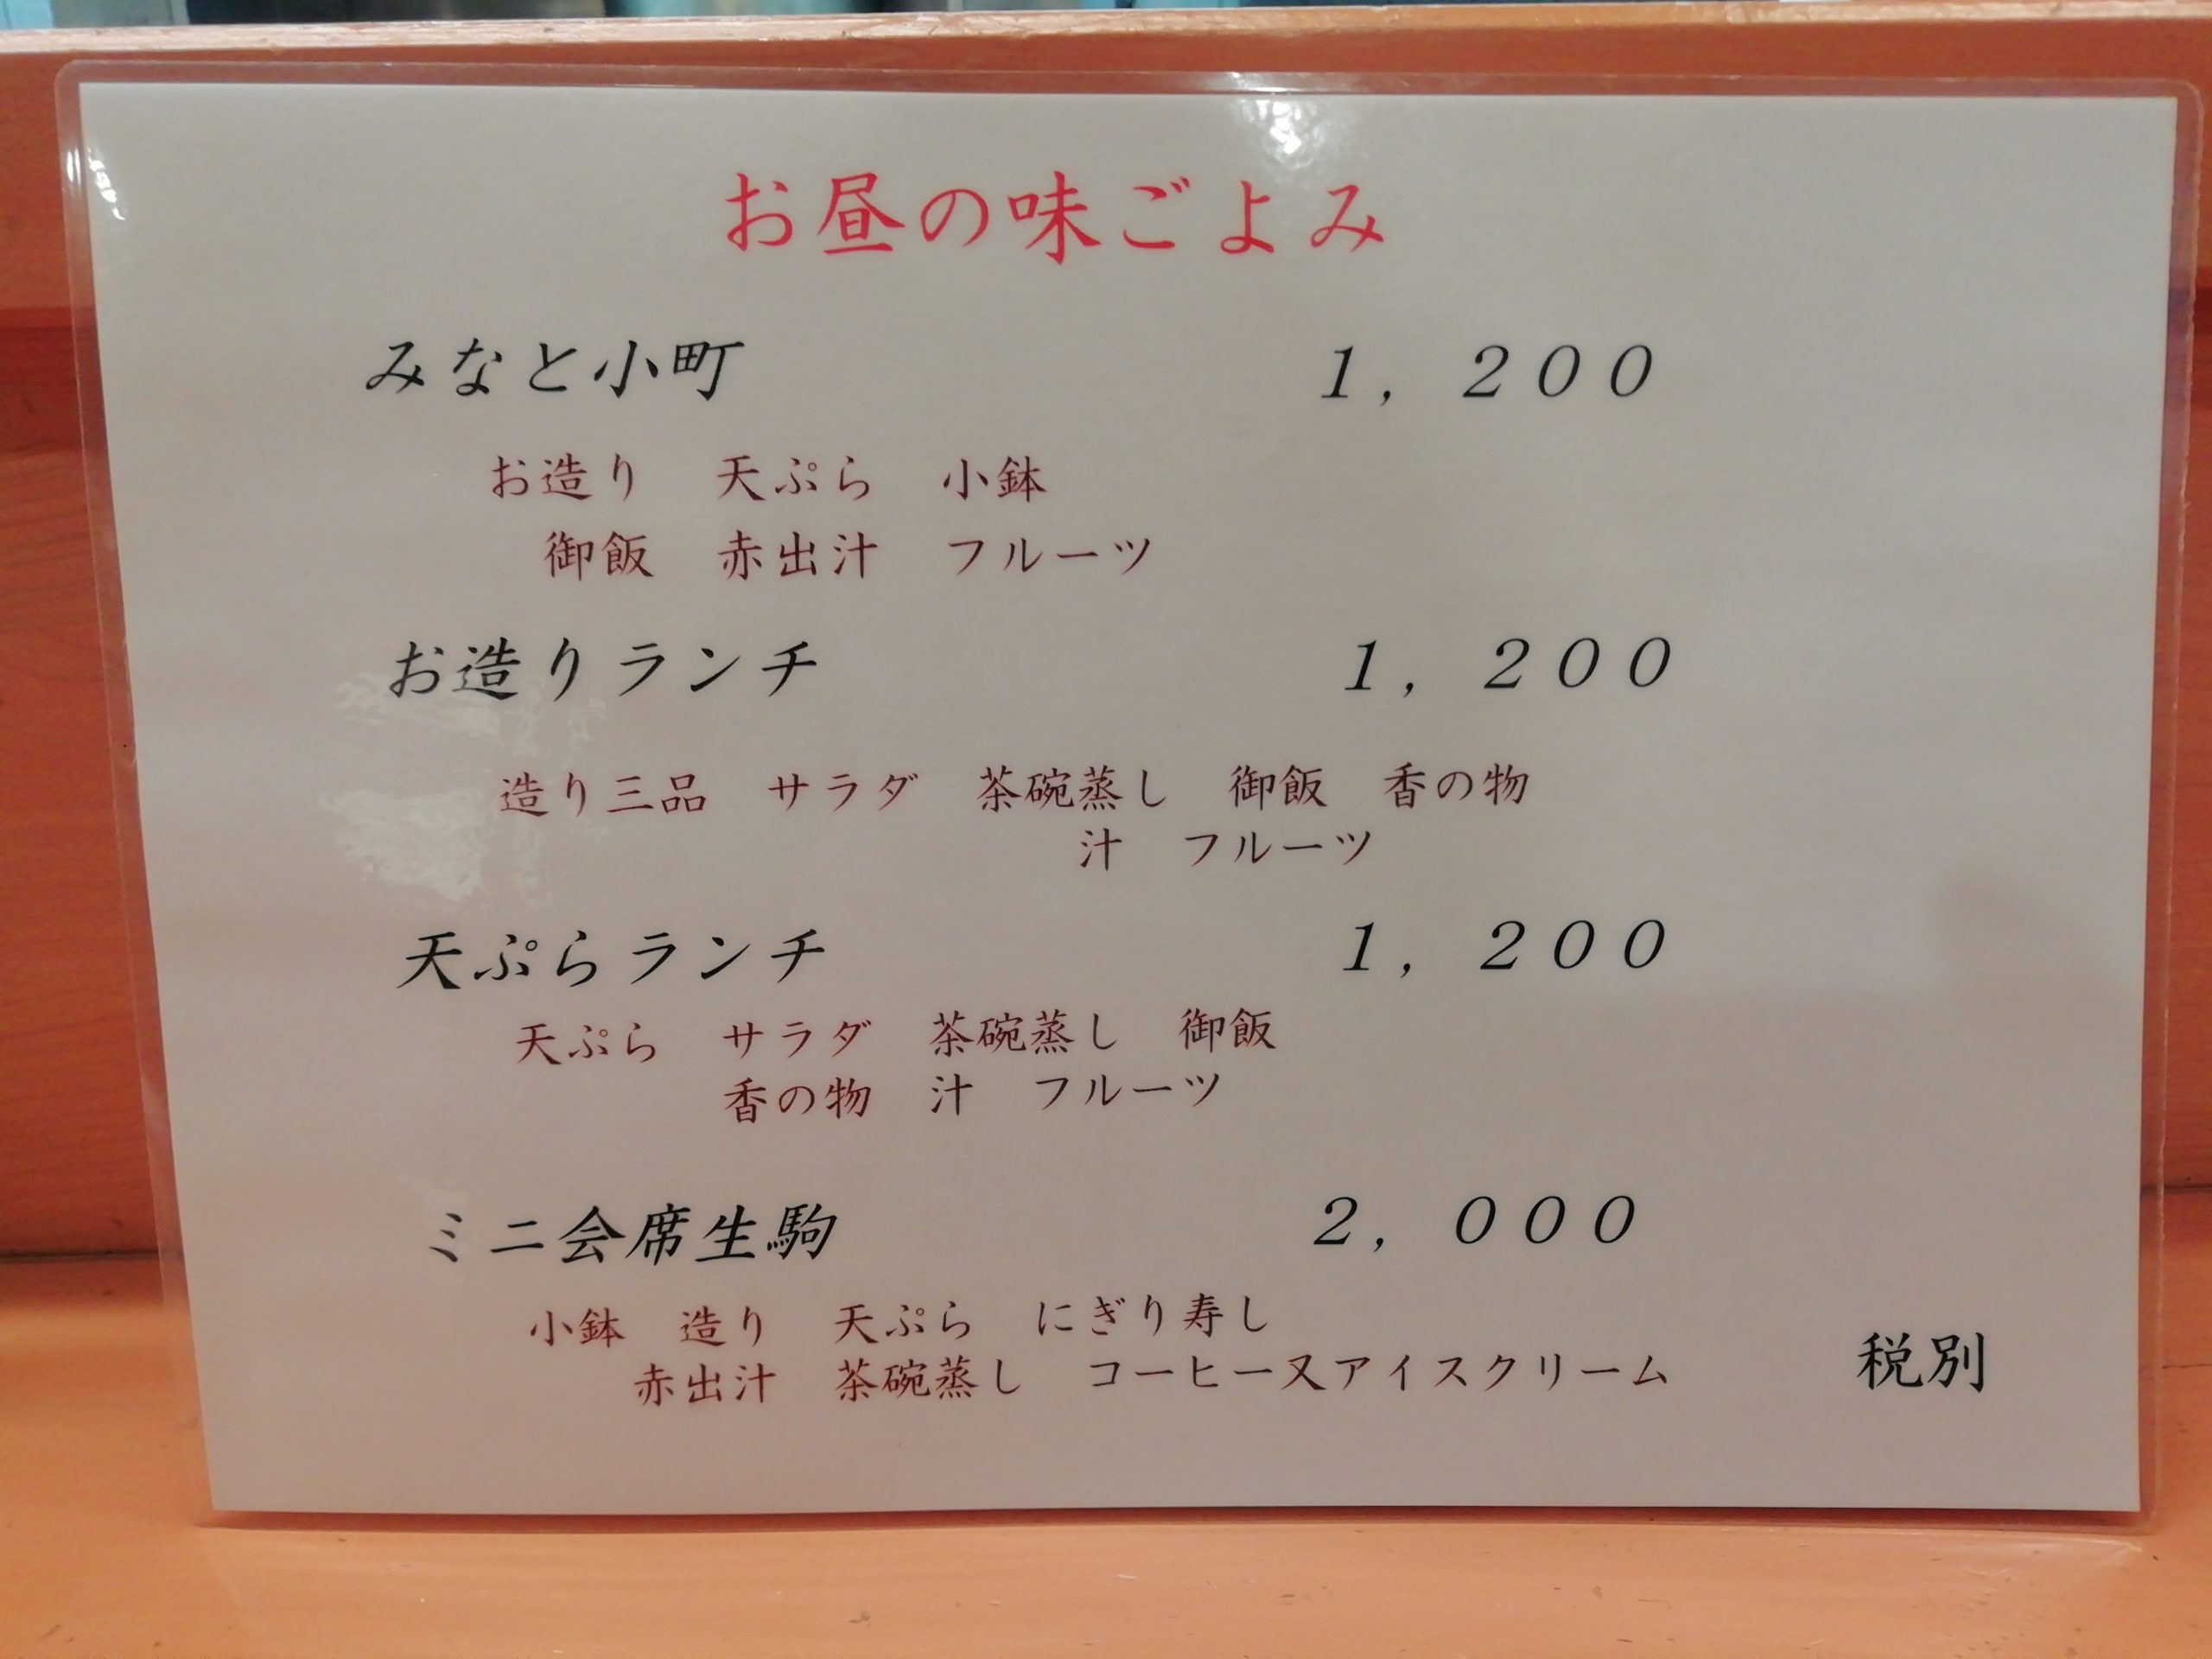 お昼の味ごよみ
みなと小町　１，２００
お造り　天ぷら　小鉢
御飯　赤出汁　フルーツ
お造りランチ　１，２００
造り三品　サラダ　茶碗蒸し　御飯　香の物
汁　フルーツ
天ぷらランチ　１，２００
天ぷら　サラダ　茶碗蒸し　御飯
香の物　汁　フルーツ
ミニ会席生駒　２，０００
小鉢　造り　天ぷら　にぎり寿し
赤出汁　茶碗蒸し　コーヒー又アイスクリーム
税別